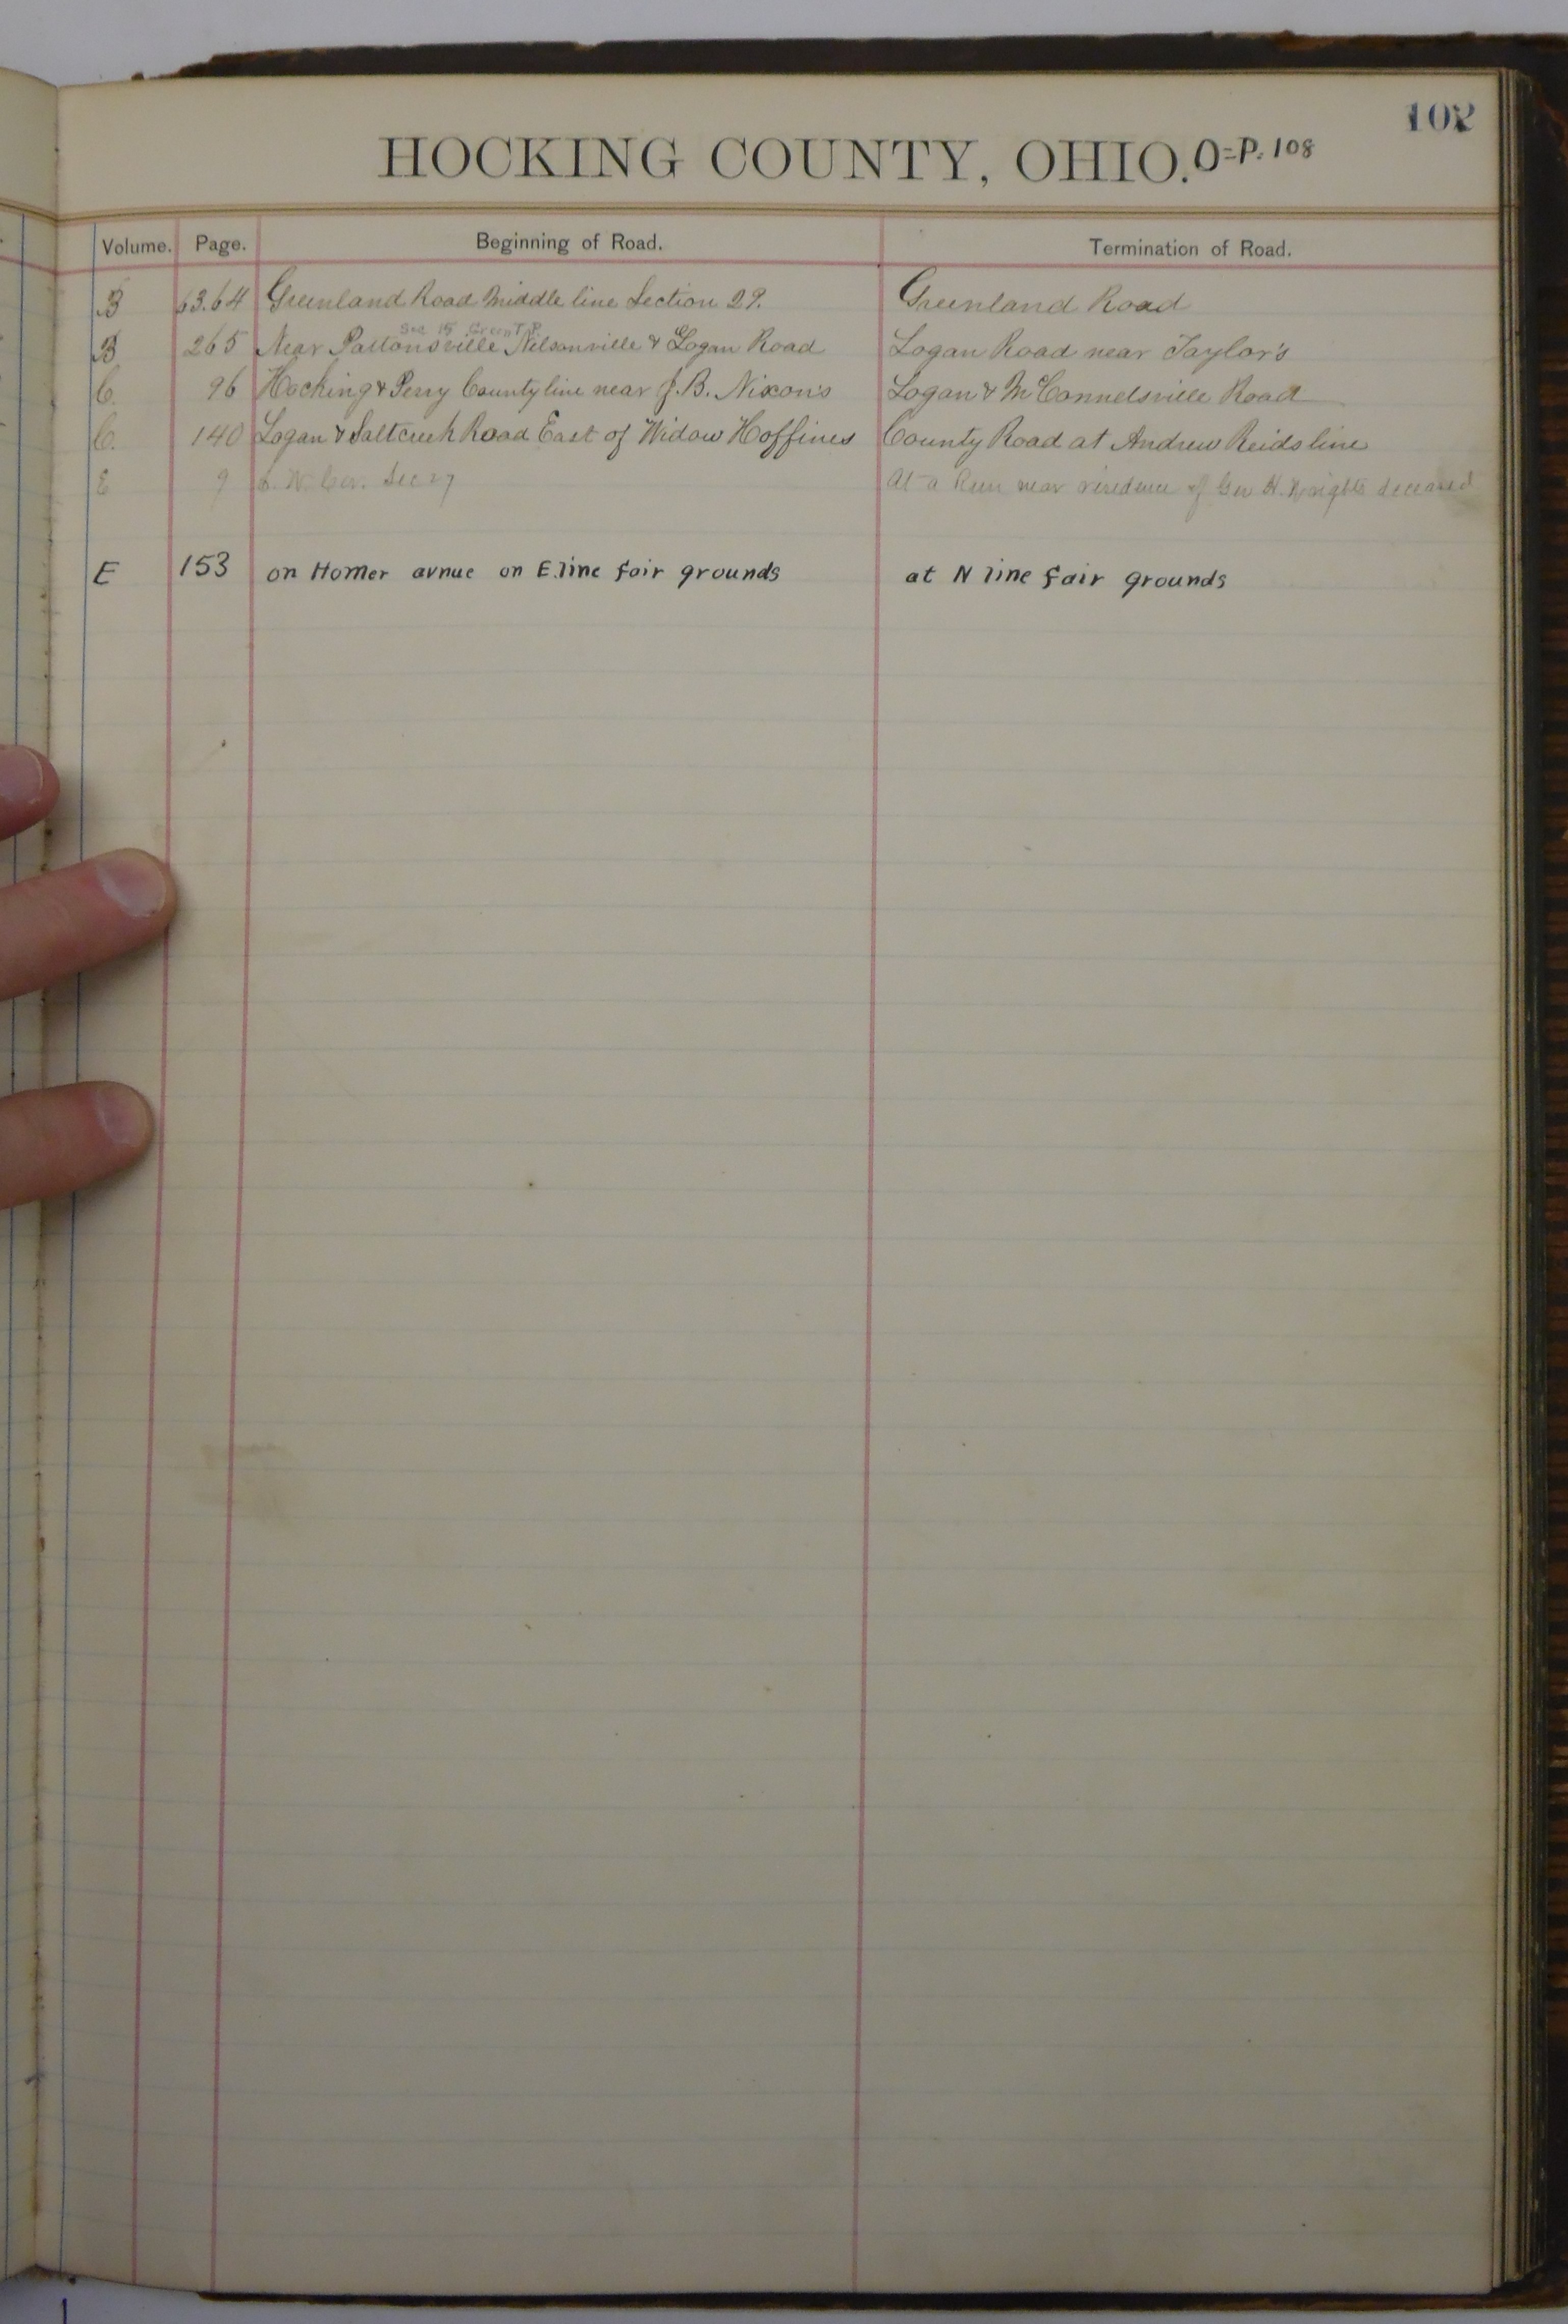 102
HOCKING COUNTY, OHIO. O=P. 108
Volume. Page. Beginning of Road. Termination of Road.
B 63.64 Greenland Road Middle line Section 29. Greenland Road
Sec 15 Green T.P.
B 265 Near Pattonsville Nelsonville & Logan Road Logan Road near Taylor's
C. 96 Hocking & Perry County line near J.B. Nixon's Logan & McConnelsville Road
C. 140 Logan & Saltcreek Road East of Widow Hoffines County Road at Andrew Reids line
E 9 N. Cor. Sec 27 At a Run near residence of Geo H. Wrights deceased
E 153 on Homer avnue on E.line fair grounds at N line fair grounds